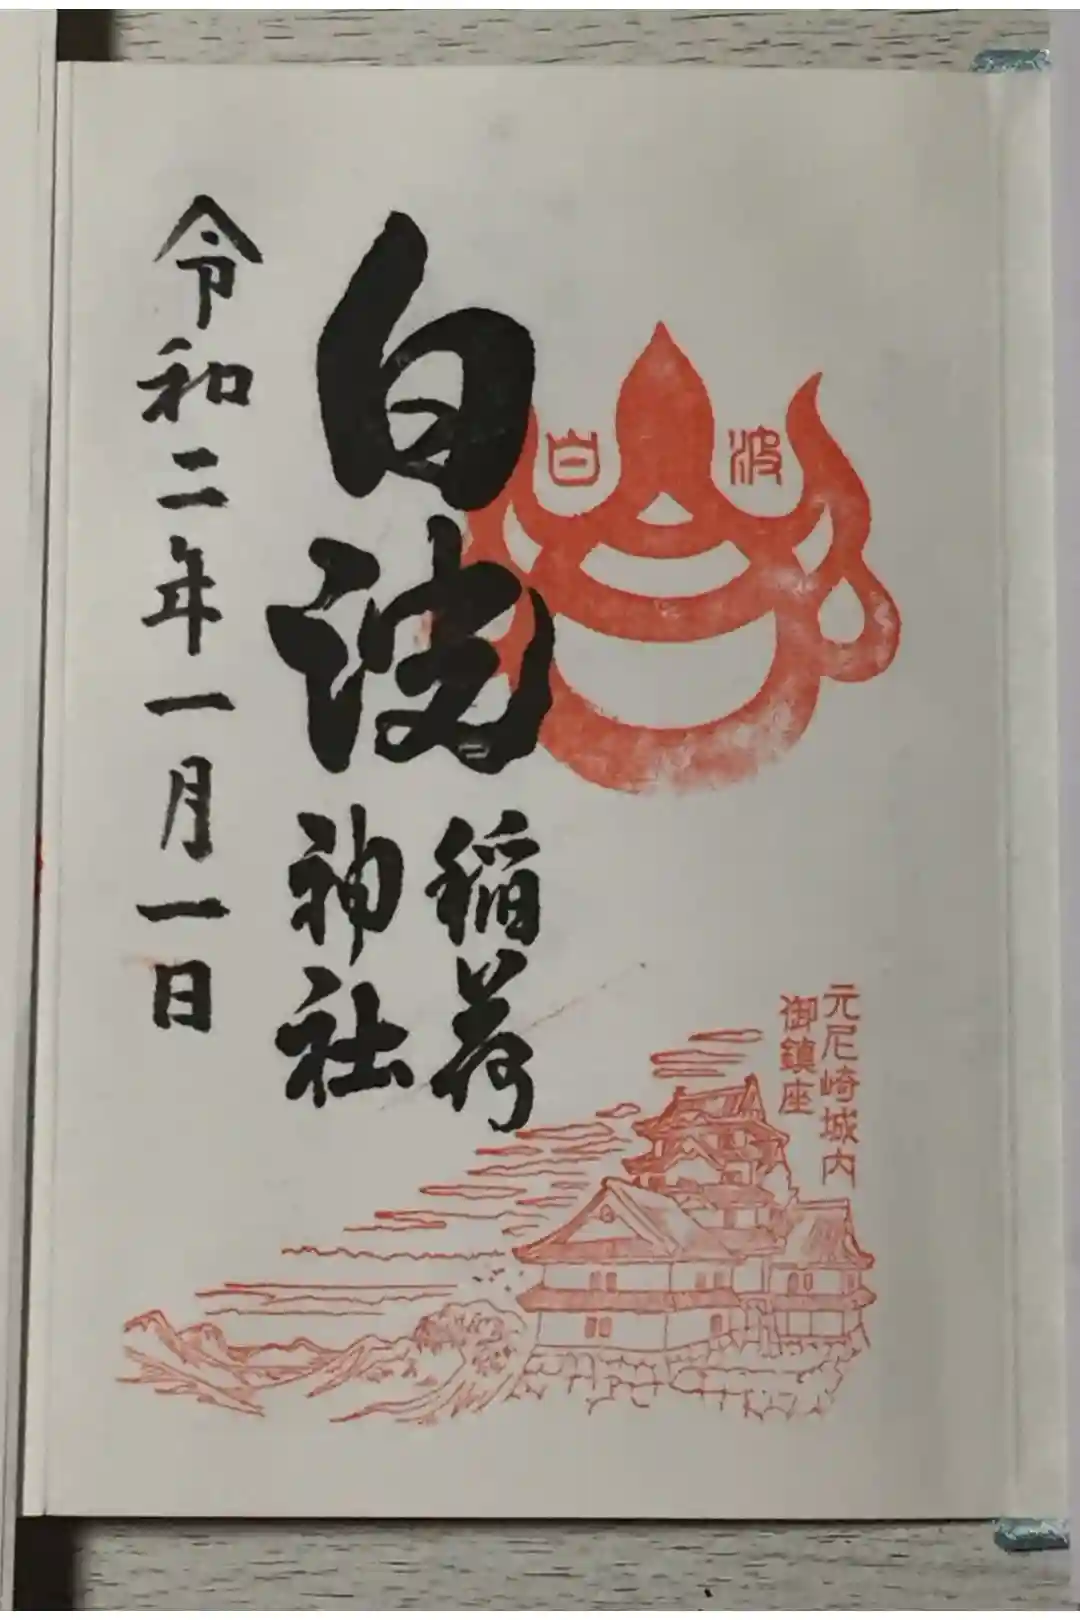 白波
元尼崎城内
御鎮座
白波
稲荷
神社
令和二年一月一日